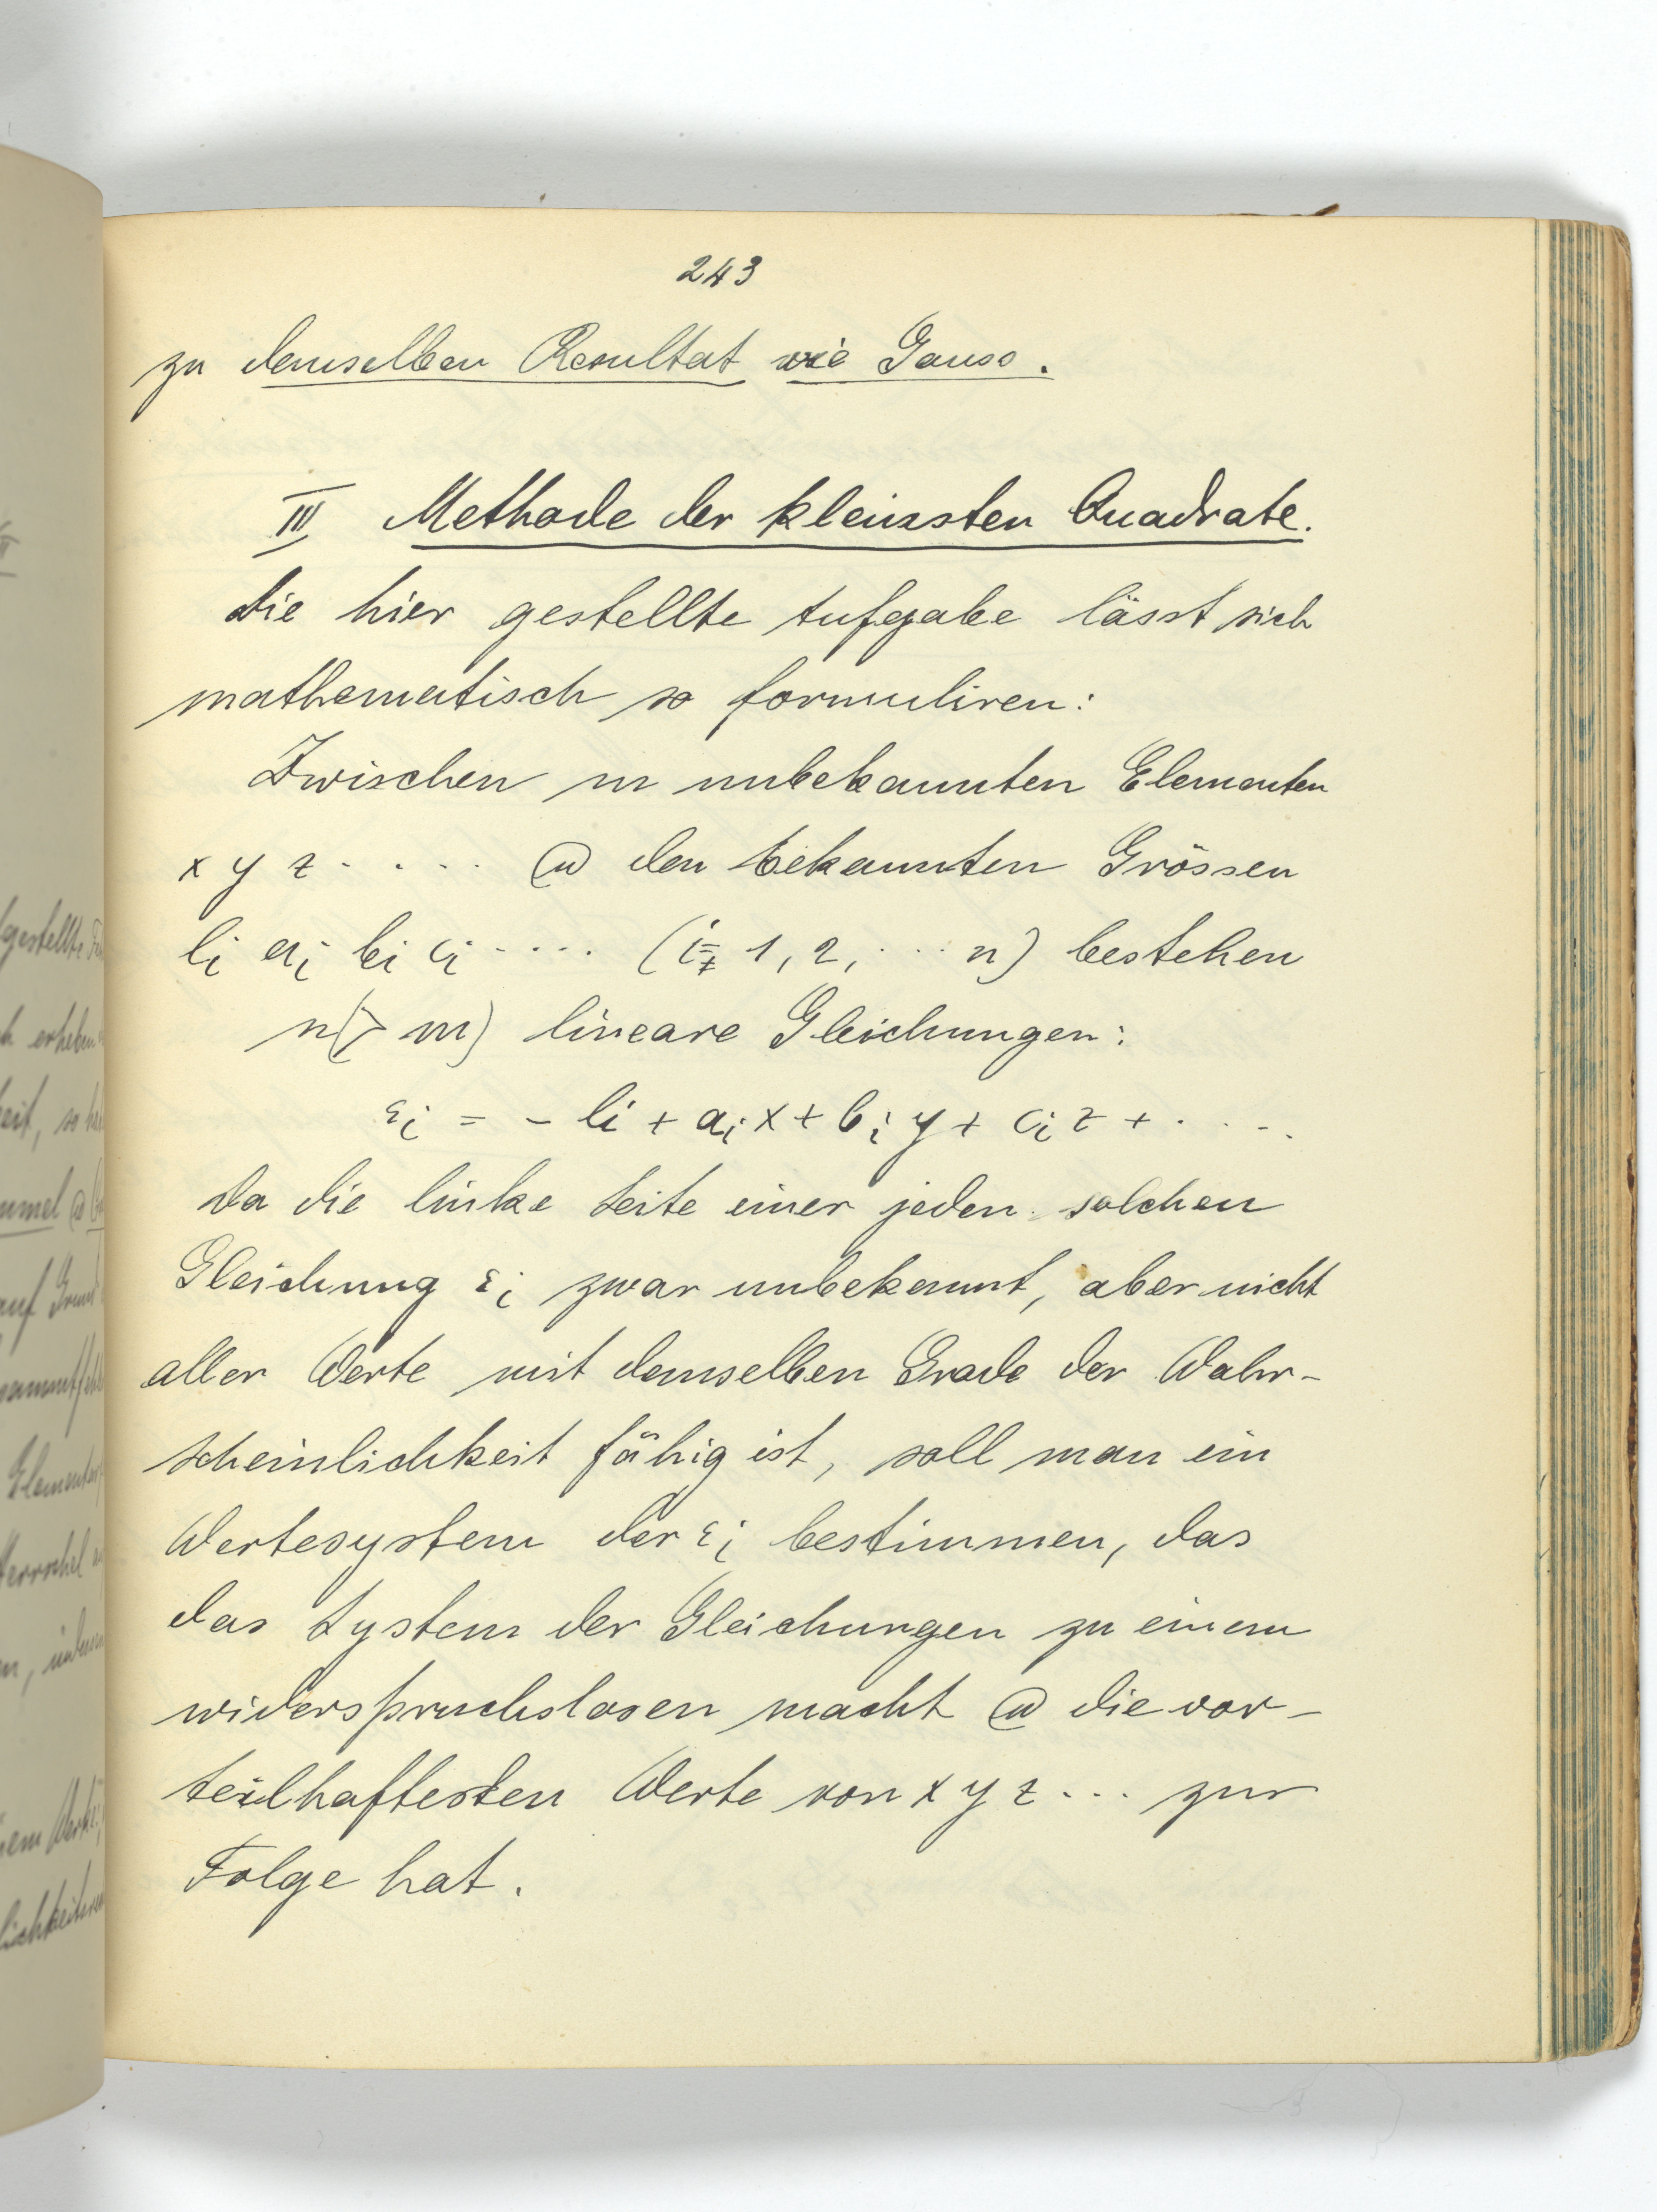 243
zu demselben Resultat wie Gauss.
IV Methode der kleinsten Quadrate.
Die hier gestellte Aufgabe lässt sich
mathematisch so formuliren:
Zwischen m unbekannten Elementen
x y z . . . . . u den bekannten Grössen
li ai bi ci ..... (i = 1, 2, ... n) bestehen
n (> m) lineare Gleichungen:
εi = - li + ai x + bi y + ci z + . . . .
Da die linke Seite einer jeden solchen
Gleichung εi zwar unbekannt, aber nicht
aller Werte mit demselben Grade der Wahr-
scheinlichkeit fähig ist, soll man ein
Wertesystem der εi bestimmen, das
das System der Gleichungen zu einem
widerspruchslosen macht u die vor-
teilhaftesten Werte von x y z ... zur
Folge hat.